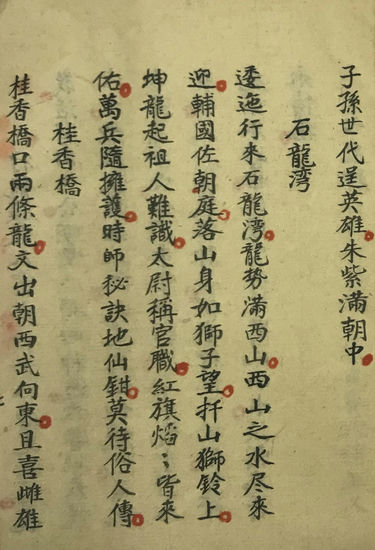 子孫世代逞英雄朱紫滿朝中
石龍湾
逶迤行來石龍湾龍勢滿西山西山之水尽來
迎輔國佐朝庭落山身如獅子望扦山獅鈴上
坤龍起祖人難識太尉稱官職紅旗熖〻皆來
佑萬兵隨擁護時師秘訣地仙鉗莫待俗人傳
桂香橋
桂香橋口兩條龍文出朝西武向東且喜雌雄